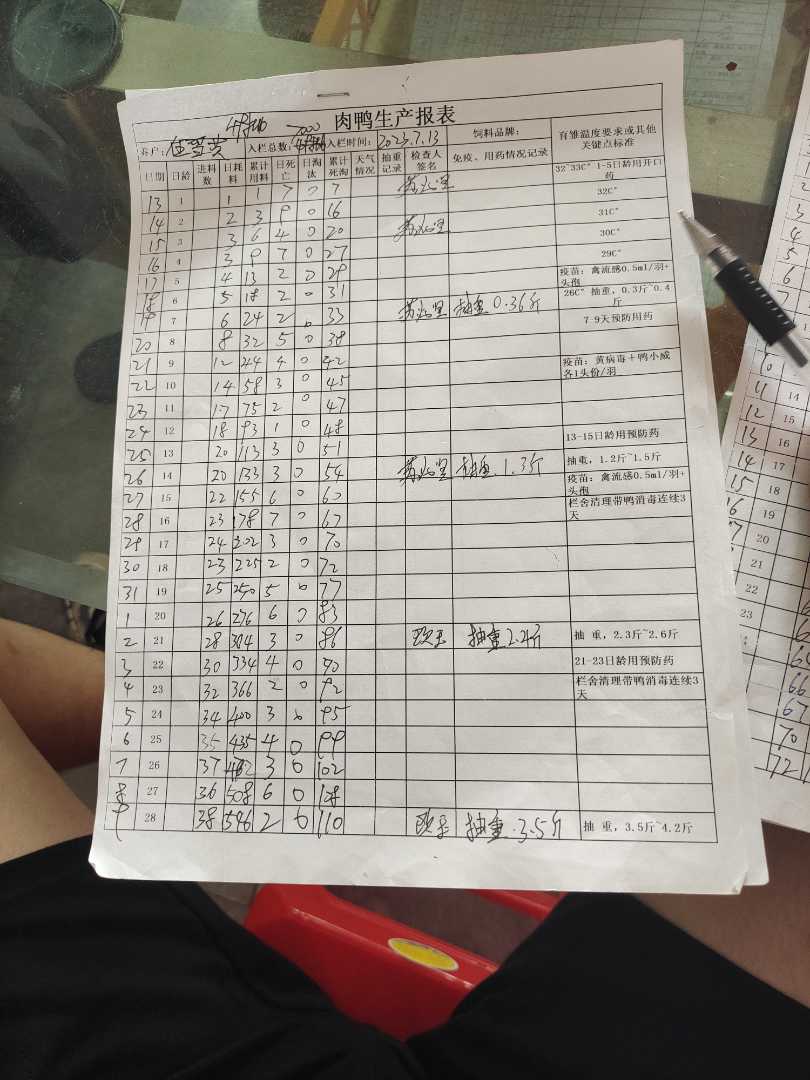 肉鸭生产报表
养户： 4号棚 入栏总数：7000 4号棚 入栏时间：2023.7.13 饲料品牌： 育雏温度要求或其他关键点标准
日期 日龄 进料数 日耗料 累计用料 日死亡 日淘汰 累计死淘 天气情况 抽重记录 检查人签名 免疫、用药情况记录
13 1 1 1 7 0 7 32~33C° 1-5日龄用开口药
14 2 2 3 9 0 16 32C°
15 3 3 6 4 0 20 31C°
16 4 3 9 7 0 27 30C°
17 5 4 13 2 0 29 29C°
18 6 5 18 2 0 31 疫苗：禽流感0.5ml/羽+头孢
19 7 6 24 2 0 33 抽重 0.36斤 26C° 抽重，0.3斤~0.4斤
20 8 8 32 5 0 38 7-9天预防用药
21 9 12 44 4 0 42
22 10 14 58 3 0 45 疫苗：黄病毒＋鸭小威各1头份/羽
23 11 17 75 2 0 47
24 12 18 93 1 0 48
25 13 20 113 3 0 51 13-15日龄用预防药
26 14 20 133 3 0 54 抽重 1.3斤 抽重，1.2斤~1.5斤
27 15 22 155 6 0 60 疫苗：禽流感0.5ml/羽+头孢
28 16 23 178 7 0 67 栏舍清理带鸭消毒连续3天
29 17 24 202 3 0 70
30 18 23 225 2 0 72
31 19 25 250 5 0 77
1 20 26 276 6 0 83
2 21 28 304 3 0 86 抽重 2.4斤 抽 重，2.3斤~2.6斤
3 22 30 334 4 0 90 21-23日龄用预防药
4 23 32 366 2 0 92 栏舍清理带鸭消毒连续3天
5 24 34 400 3 0 95
6 25 35 435 4 0 99
7 26 37 472 3 0 102
8 27 36 508 6 0 108
9 28 38 546 2 0 110 抽重 3.5斤 抽 重，3.5斤~4.2斤